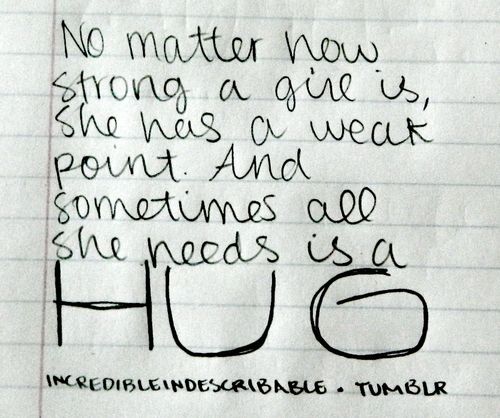 No matter how
strong a girl is,
she has a weak
point. And
sometimes all
she needs is a
HUG
INCREDIBLEINDESCRIBABLE. TUMBLR